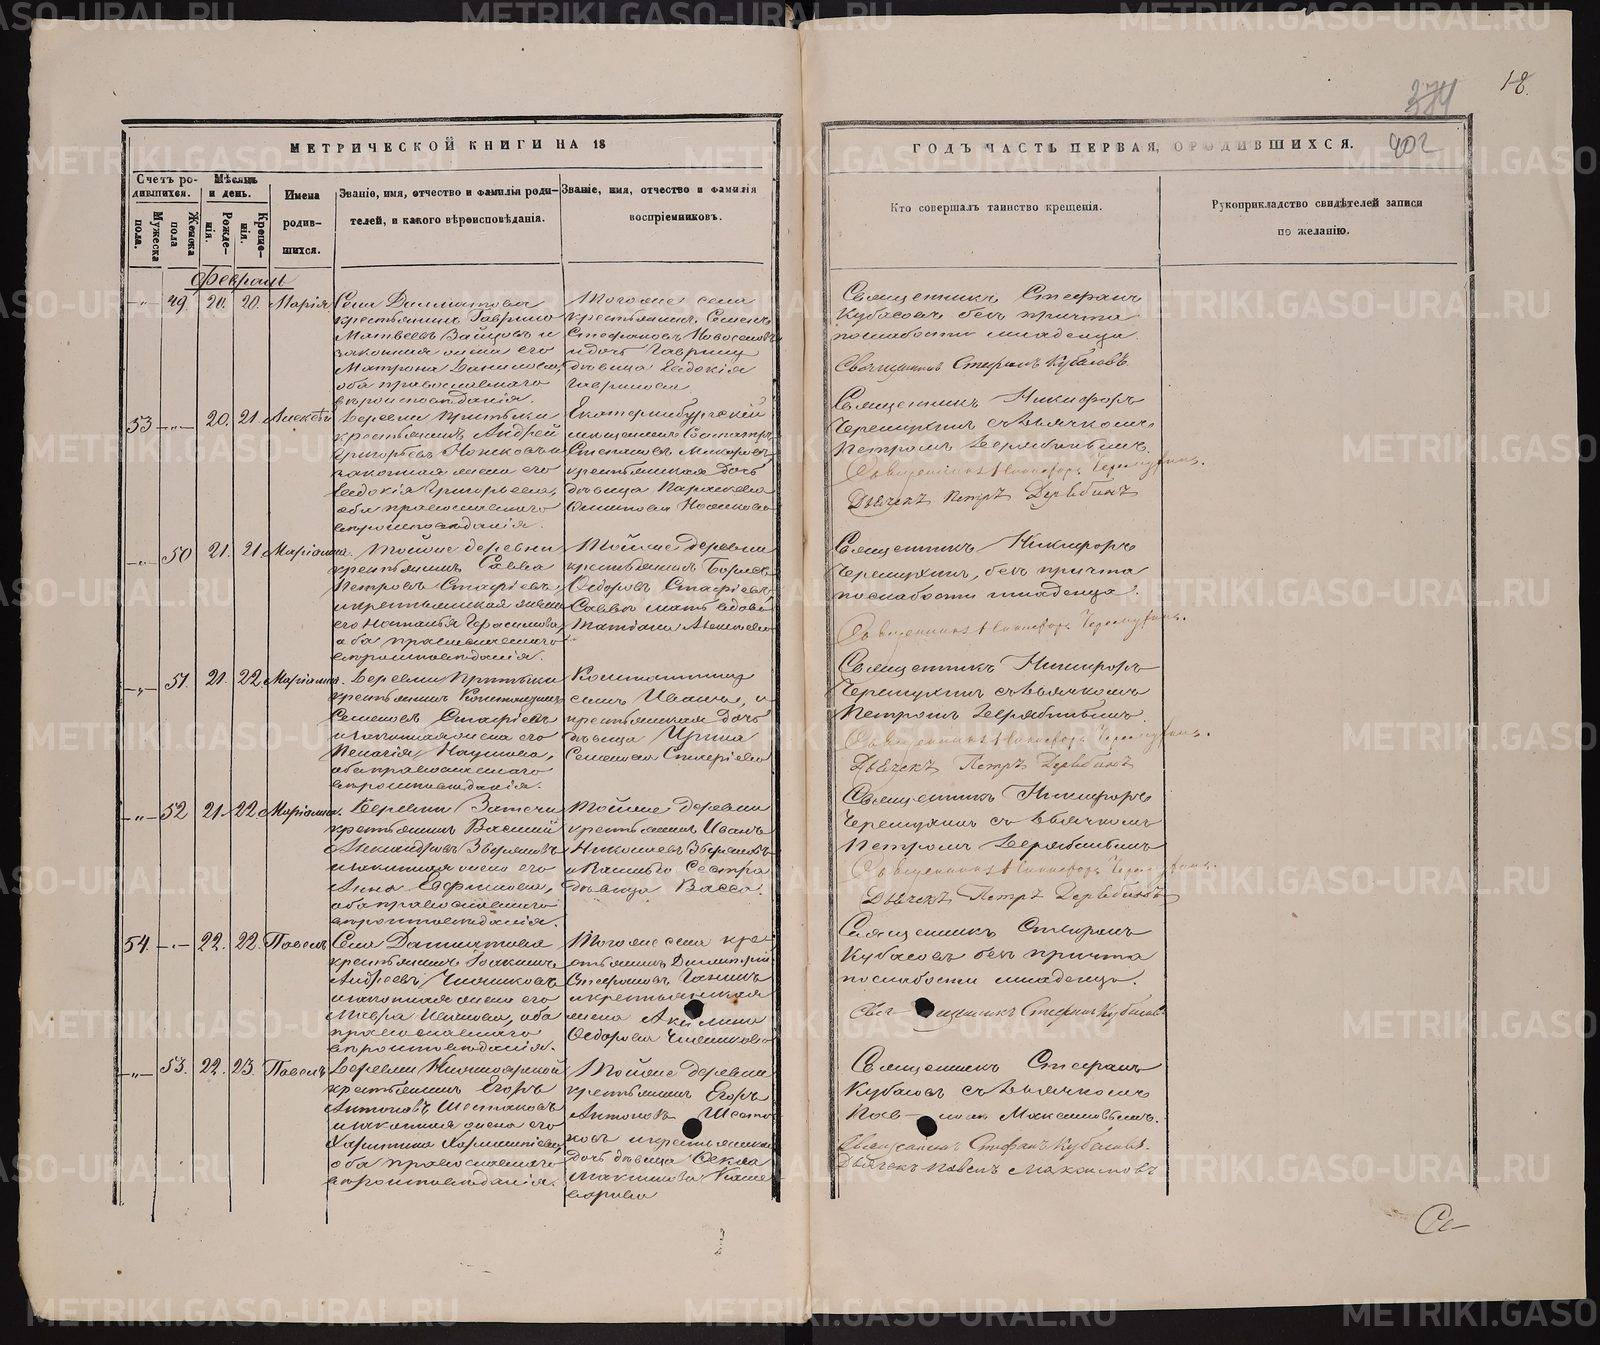 18.
374
402
МЕТРИЧЕСКОЙ КНИГИ НА 18
ГОДЪ ЧАСТЬ ПЕРВАЯ, О РОДИВШИХСЯ.
Счетъ ро-
дившихся.
Мужеска
пола.
Женска
пола
Мѣсяцъ
и день.
Рожде-
нія.
Креще-
нія.
Имена
родив-
шихся.
Званіе, имя, отчество и фамилія роди-
телей, и какого вѣроисповѣданія.
Званіе, имя, отчество и фамилія
воспріемниковъ.
Кто совершалъ таинство крещенія.
Рукоприкладство свидѣтелей записи
по желанію.
Февраль
49. 20. 20. Марія
Села Далматова
крестьянинъ Гаврило
Матвеевъ Зайцовъ и
законная жена его
Матрона Данилова,
оба православнаго
вѣроисповѣданія.
Тогоже села
крестьянинъ Семенъ
Стефановъ Новоселовъ
и дочь Гаврила
дѣвица Евдокія
Гаврилова
Священникъ Стефанъ
Кубасовъ безъ причта
по слабости младенца.
Священникъ Стефанъ Кубасовъ
53 20. 21. Алексѣй
Деревни Притыки
крестьянинъ Андрей
Григорьевъ Ножковъ и
законная жена его
Евдокія Григорьева,
оба православнаго
вѣроисповѣданія.
Екатеринбургскій
мещанинъ
Степановъ
крестьянская дочь
дѣвица Параскева
Священникъ Никифоръ
Черемухинъ съ дьячкомъ
Петромъ Дерябинымъ.
Священникъ Никифоръ Черемухинъ.
Дьячекъ Петръ Дерябинъ
50 21. 21. Маріамна.
Тойже деревни
крестьянинъ Савва
Петровъ
и крестьянская жена
его Наталья Герасимова,
оба православнаго
вѣроисповѣданія.
Тойже деревни
крестьянинъ Борисъ
Ѳедоровъ
Саввы мать вдова
Татіана
Священникъ Никифоръ
Черемухинъ, безъ причта
по слабости младенца.
Священникъ Никифоръ Черемухинъ.
51. 21. 22. Маріамна.
Деревни Притыки
крестьянинъ Константинъ
Семеновъ
и законная жена его
Пелагія Наумова,
оба православнаго
вѣроисповѣданія.
Константина
сынъ Иванъ, и
крестьянская дочь
дѣвица Ирина
Семенова
Священникъ Никифоръ
Черемухинъ съ дьячкомъ
Петромъ Дерябинымъ.
Священникъ Никифоръ Черемухинъ.
Дьячекъ Петръ Дерябинъ
52 21. 22. Маріамна.
Деревни Затечи
крестьянинъ Василій
Александровъ
и законная жена его
Анна Ефимова,
оба православнаго
вѣроисповѣданія.
Тойже деревни
крестьянинъ Иванъ
Николаевъ
и Василья сестра
дѣвица Васса.
Священникъ Никифоръ
Черемухинъ съ дьячкомъ
Петромъ Дерябинымъ
Священникъ Никифоръ Черемухинъ.
Дьячекъ Петръ Дерябинъ
54. 22. 22. Павелъ
Села Далматова
крестьянинъ Іоакимъ
Андреевъ
и законная жена его
Мавра Иванова, оба
православнаго
вѣроисповѣданія.
Тогоже села кре-
стьянинъ Димитрій
Стефановъ Ганинъ
и крестьянская
жена Акилина
Ѳедорова
Священникъ Стефанъ
Кубасовъ безъ причта
по слабости младенца.
Священникъ Стефанъ Кубасовъ
53. 22. 23. Павелъ
Деревни
крестьянинъ Егоръ
Антоновъ Шестаковъ
и законная жена его
Харитина
оба православнаго
вѣроисповѣданія.
Тойже деревни
крестьянинъ Егоръ
Антоновъ Шеста-
ковъ и крестьянская
дочь дѣвица Ѳекла
Священникъ Стефанъ
Кубасовъ съ дьячкомъ
Павломъ Максимовымъ.
Священникъ Стефанъ Кубасовъ.
Дьячекъ Павелъ Максимовъ
Св-
METRIKI.GASO-URAL.RU